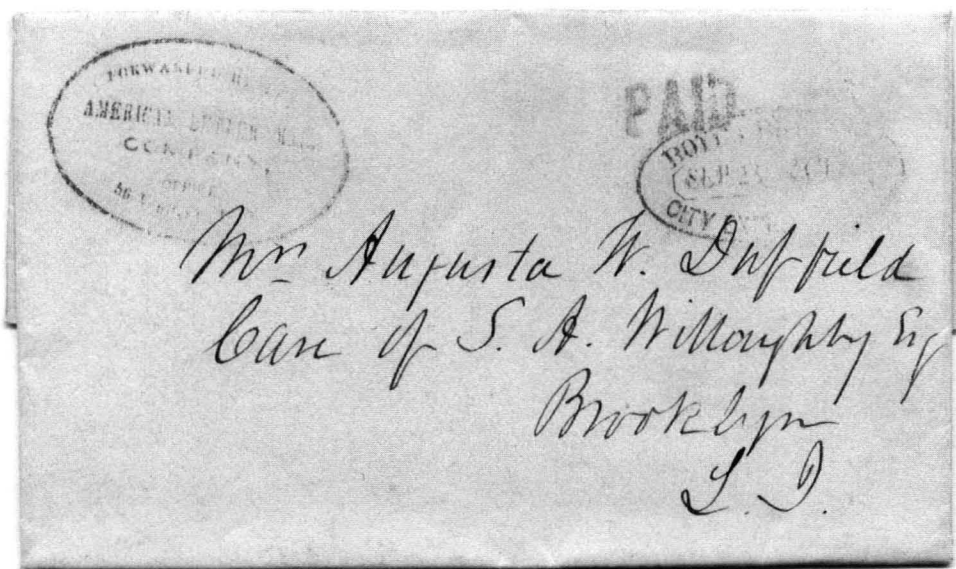 FORWARDED BY
AMERICAN LETTER MAIL
COMPANY
OFFICE
56
PAID
BOYD'S
SEP 2
CITY
Mrs Augusta W. Duffield
Care of S. A. Willoughby Esq
Brooklyn
L. I.